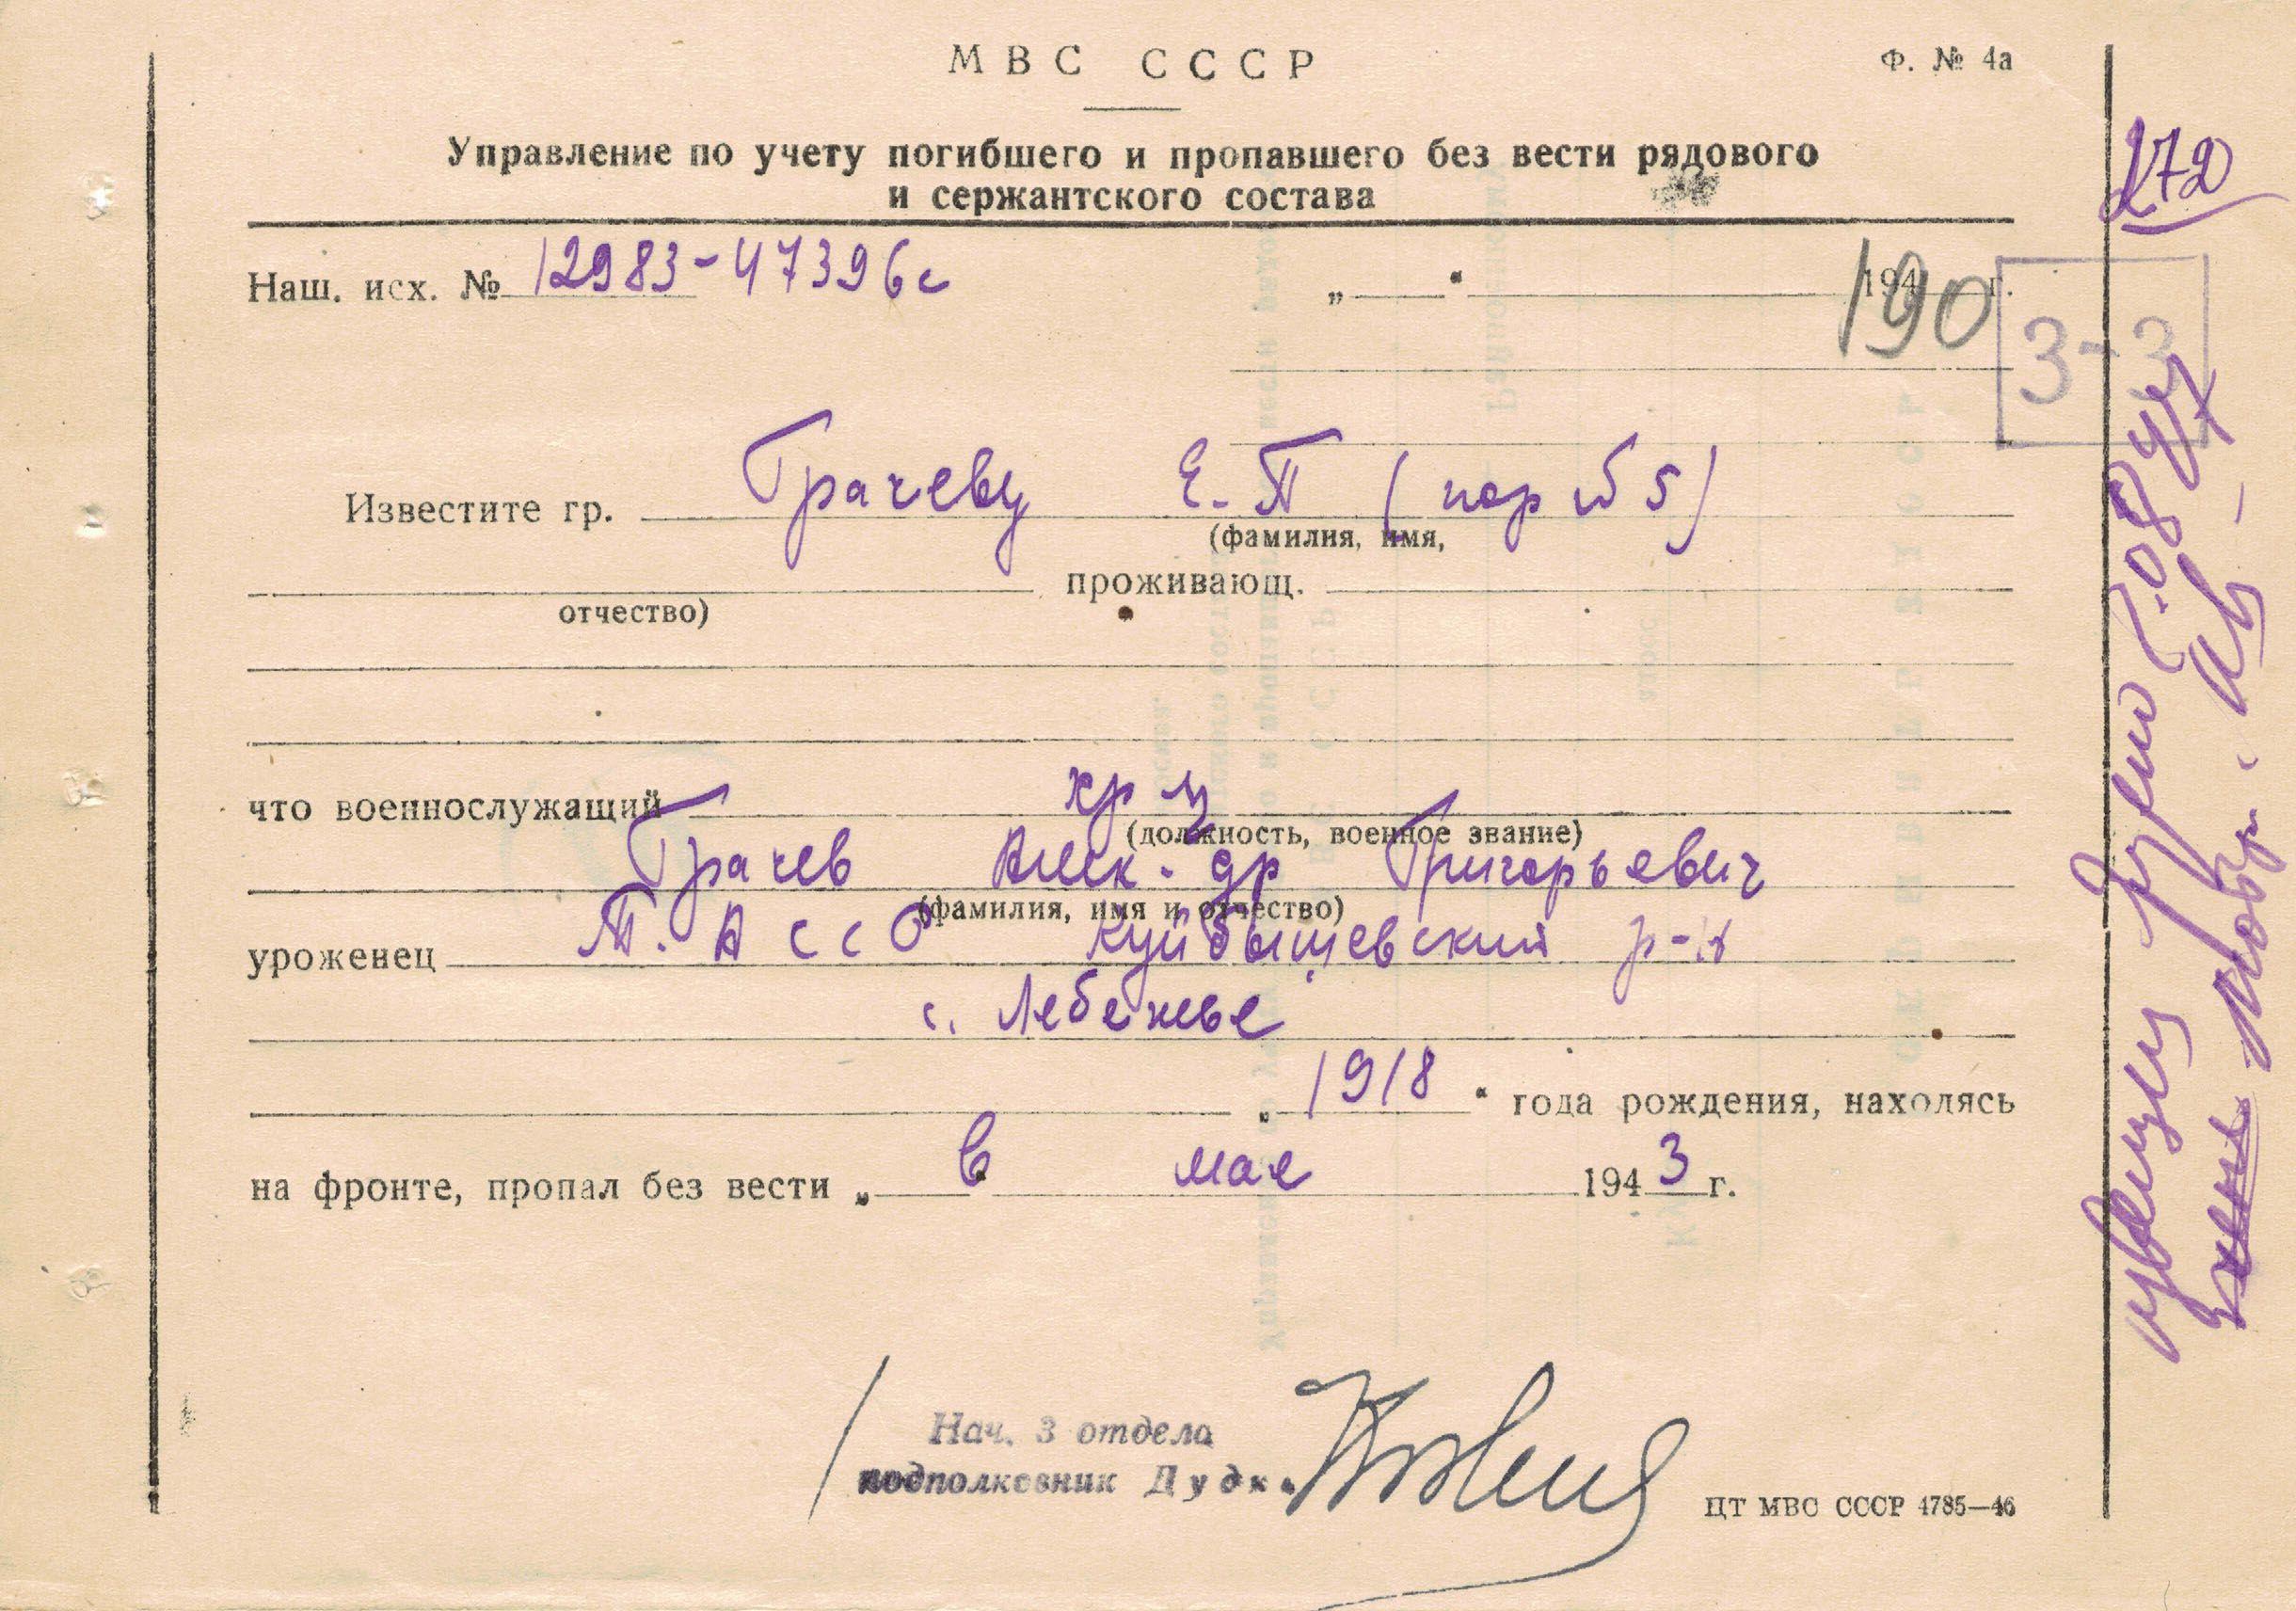 МВС СССР
Ф. № 4а
Управление по учету погибшего и пропавшего без вести рядового
и сержантского состава
272
Наш. исх. № 12983-47396с „ “ 194 г.
190
3-3
Известите гр. Грачеву Е. П (пор № 5)
(фамилия, имя,
отчество) проживающ.
что военнослужащий кр-ц
(должность, военное звание)
Грачев Алек-др Григорьевич
(фамилия, имя и отчество)
уроженец Т. АССР Куйбышевский р-н
с. Лебежье
„ 1918 “ года рождения, находясь
на фронте, пропал без вести „ в “ мае 1943 г.
Нач. 3 отдела
подполковник Дудк
ЦТ МВС СССР 4785—46